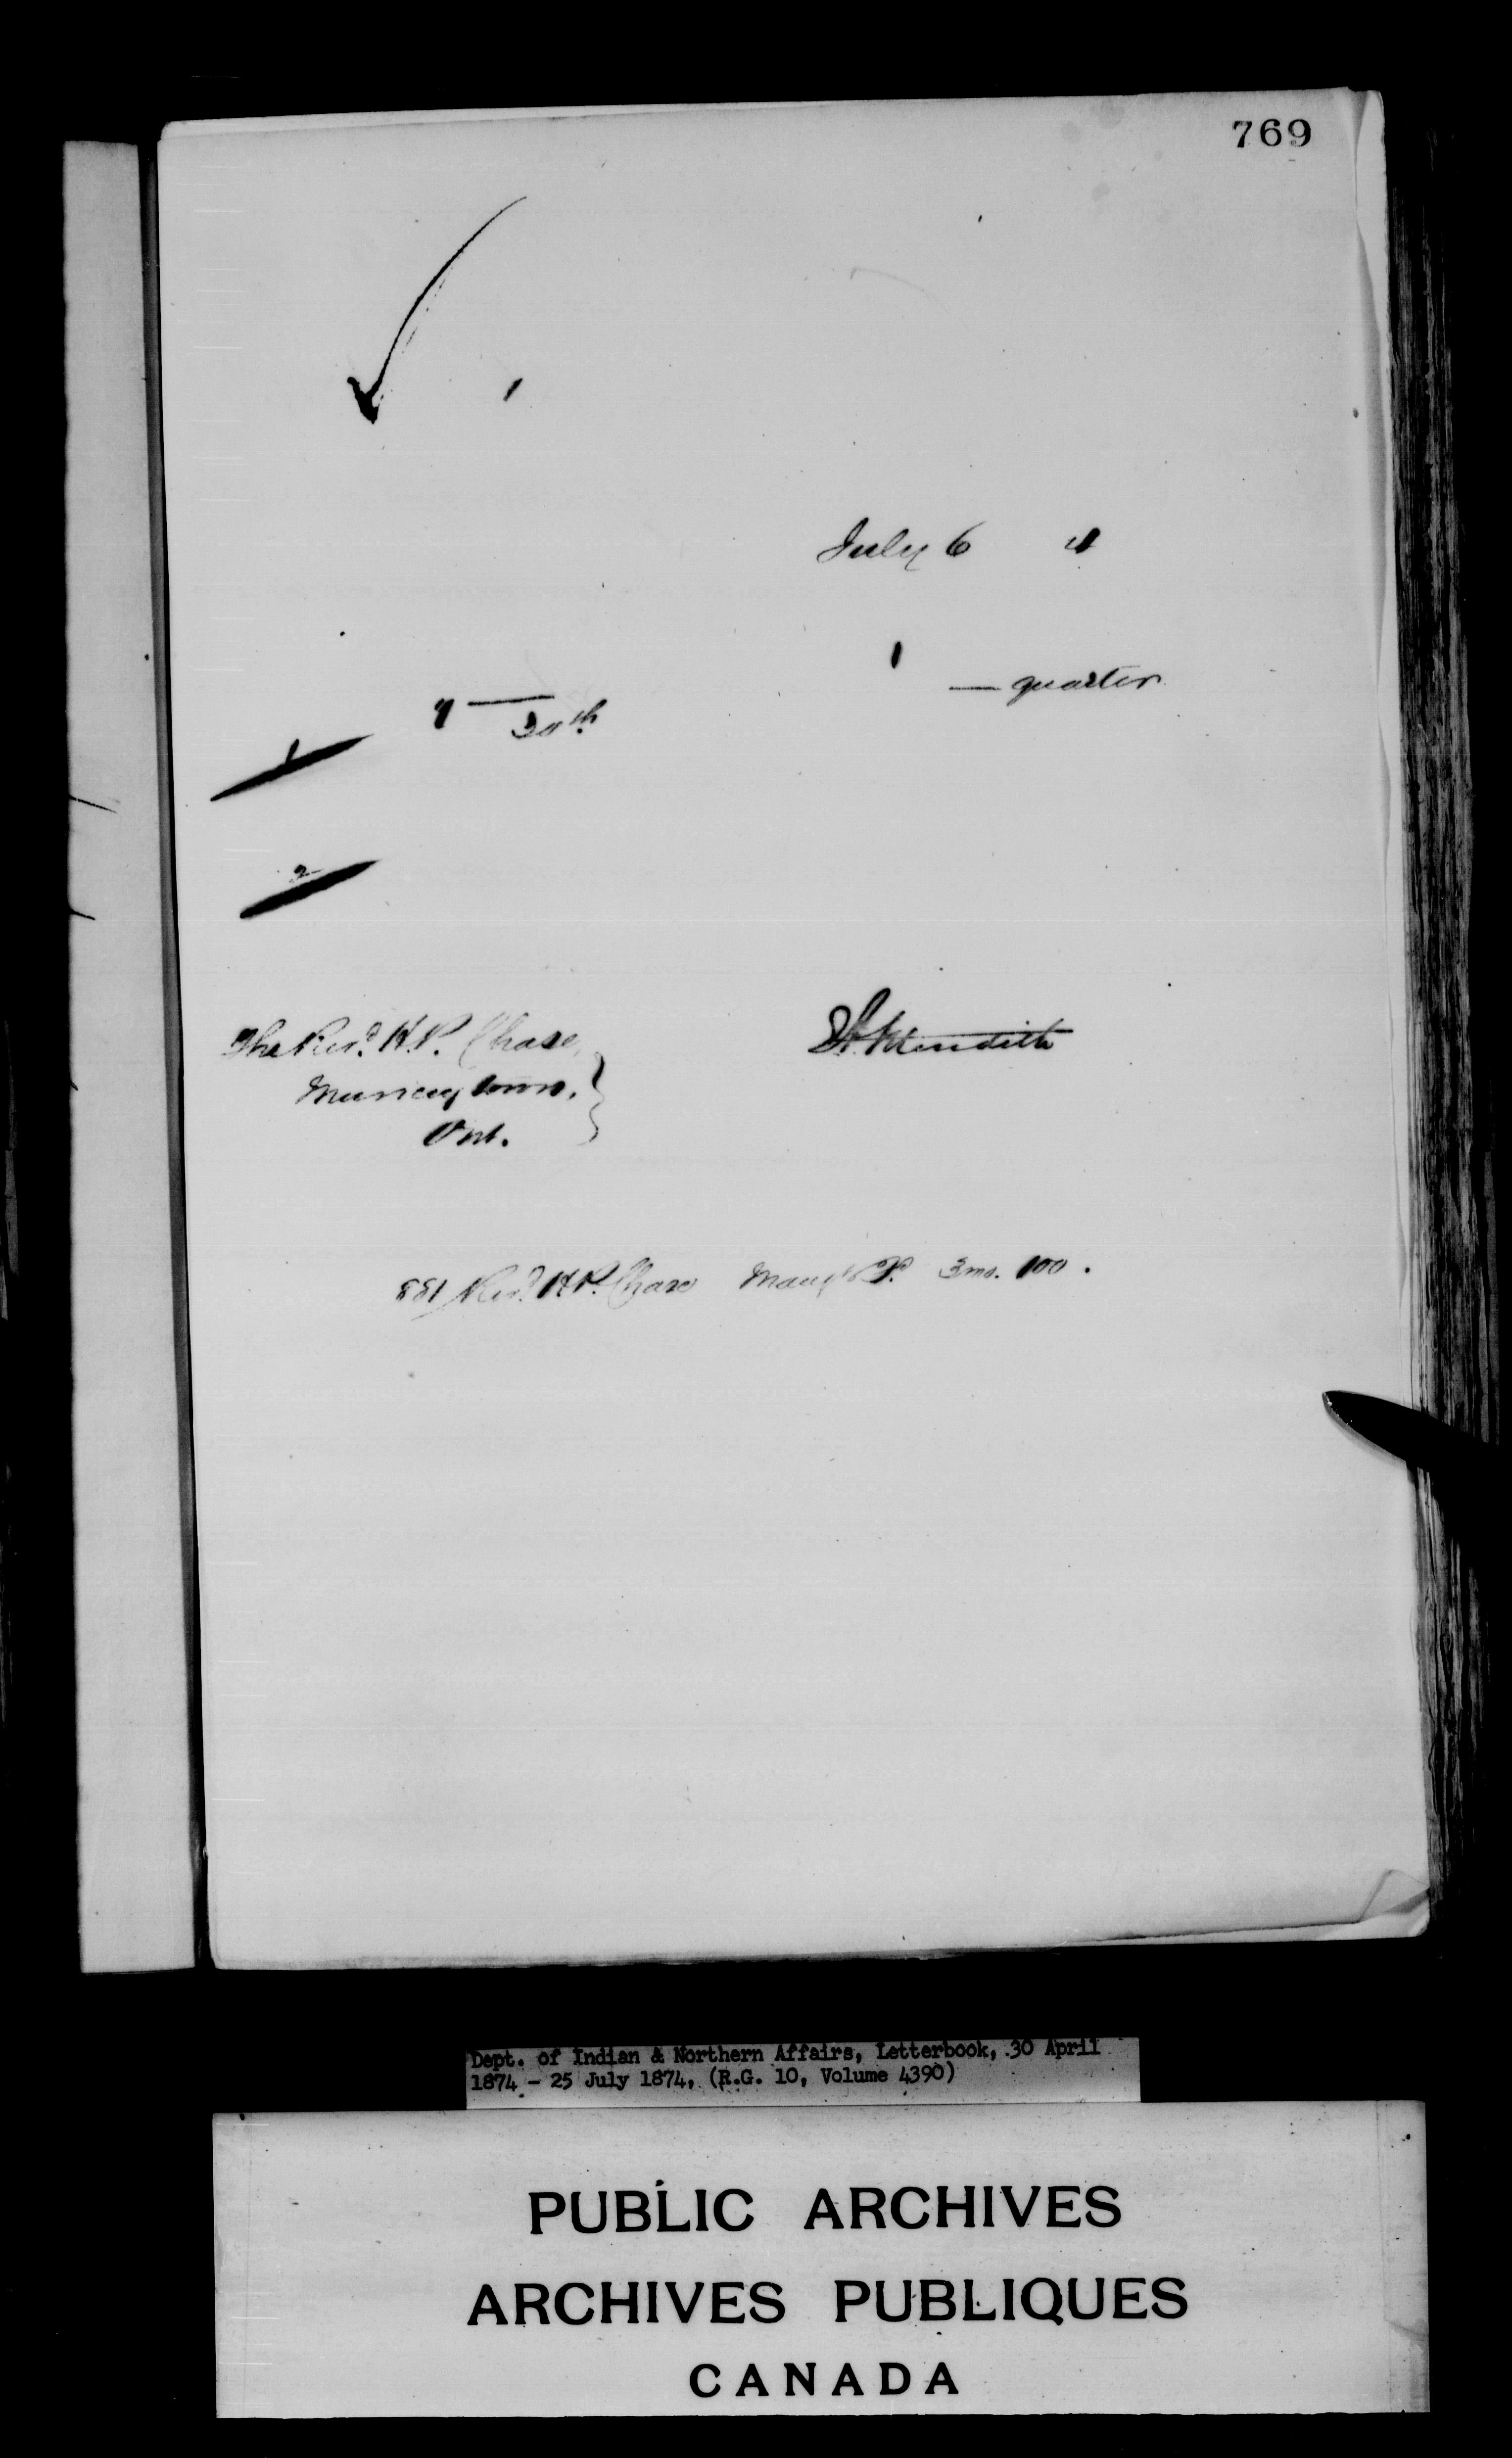 769
1
July 6 4
1
— quarter
7 — 30th
1
2
The Revd. H. P. Chase,
Munceytown,
Ont.
E. A. Meredith
881 Revd. H. P. Chase 3 mo. 100.
Dept. of Indian & Northern Affairs, Letterbook, 30 April
1874 - 25 July 1874, (R.G. 10, Volume 4390)
PUBLIC ARCHIVES
ARCHIVES PUBLIQUES
CANADA